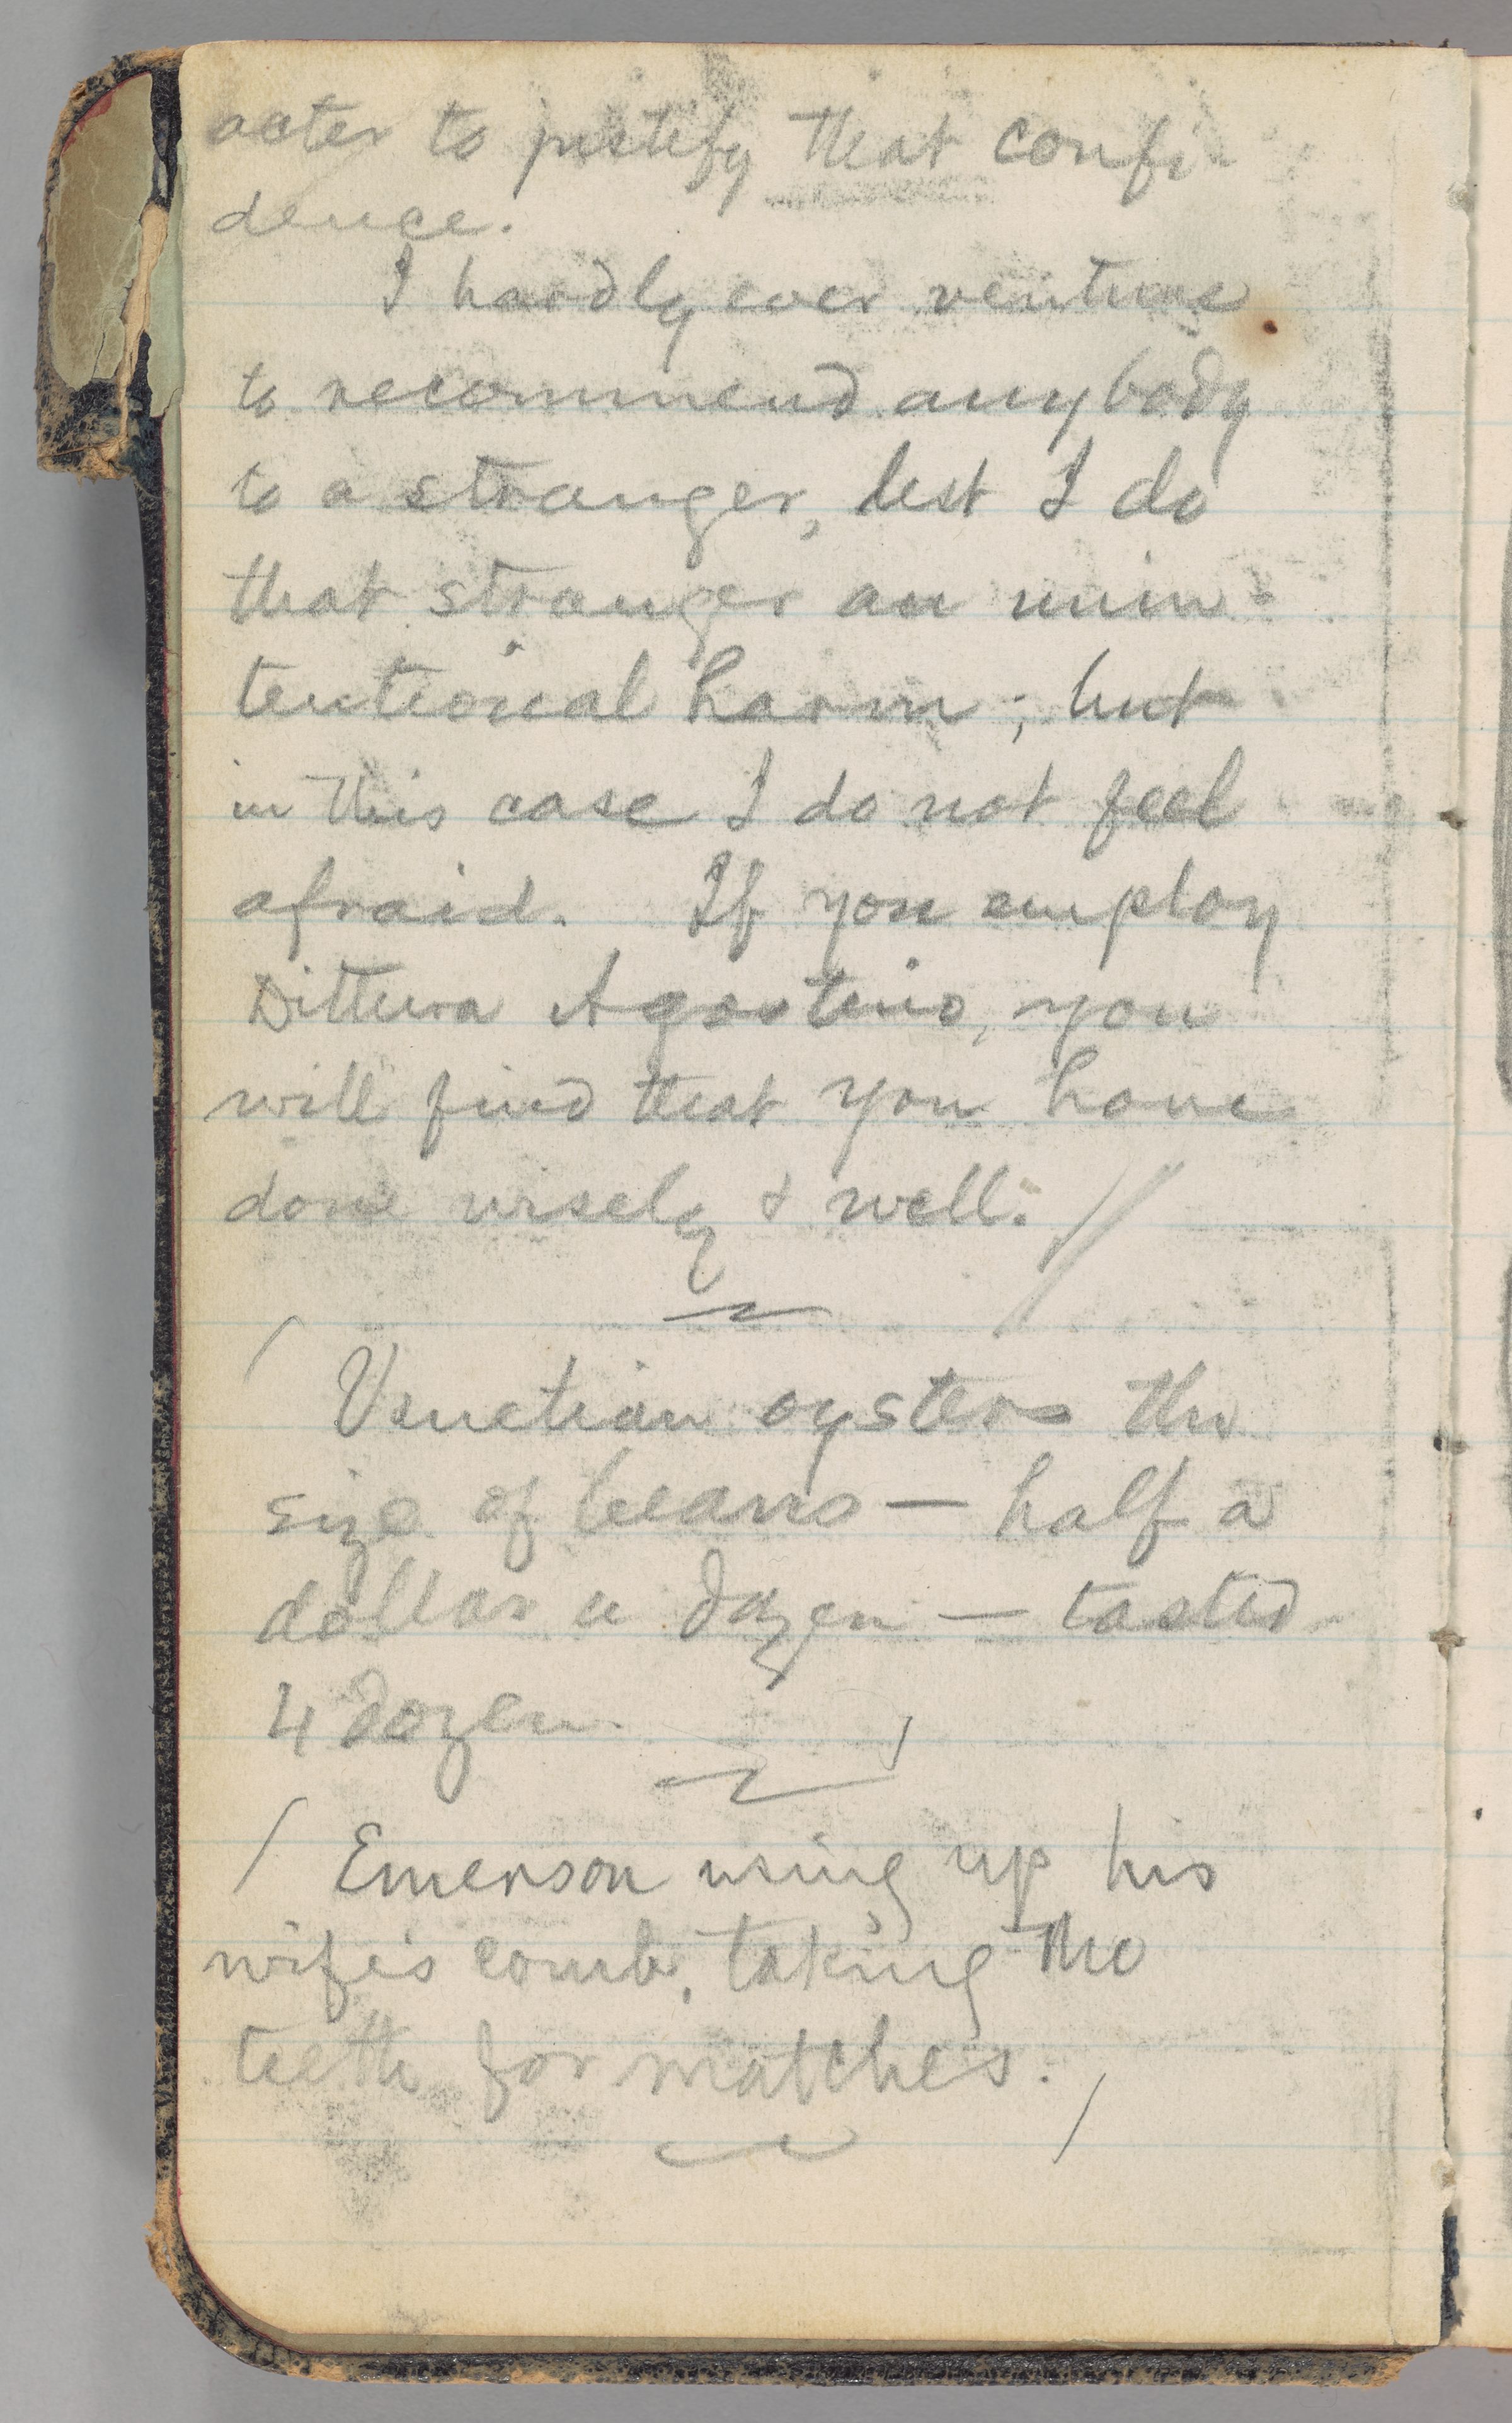 acter to justify that confi
dence.
I hardly ever venture
to recommend anybody
to a stranger, lest I do
that stranger an unin-
tentional harm; but
in this case I do not feel
afraid. If you employ
Dittura Agostino, you
will find that you have
done wisely & well. //
/ Venetian oysters the
size of beans — half a
dollar a dozen — tasted
4 dozen. /
/ Emerson using up his
wife's comb, taking the
teeth for matches. /